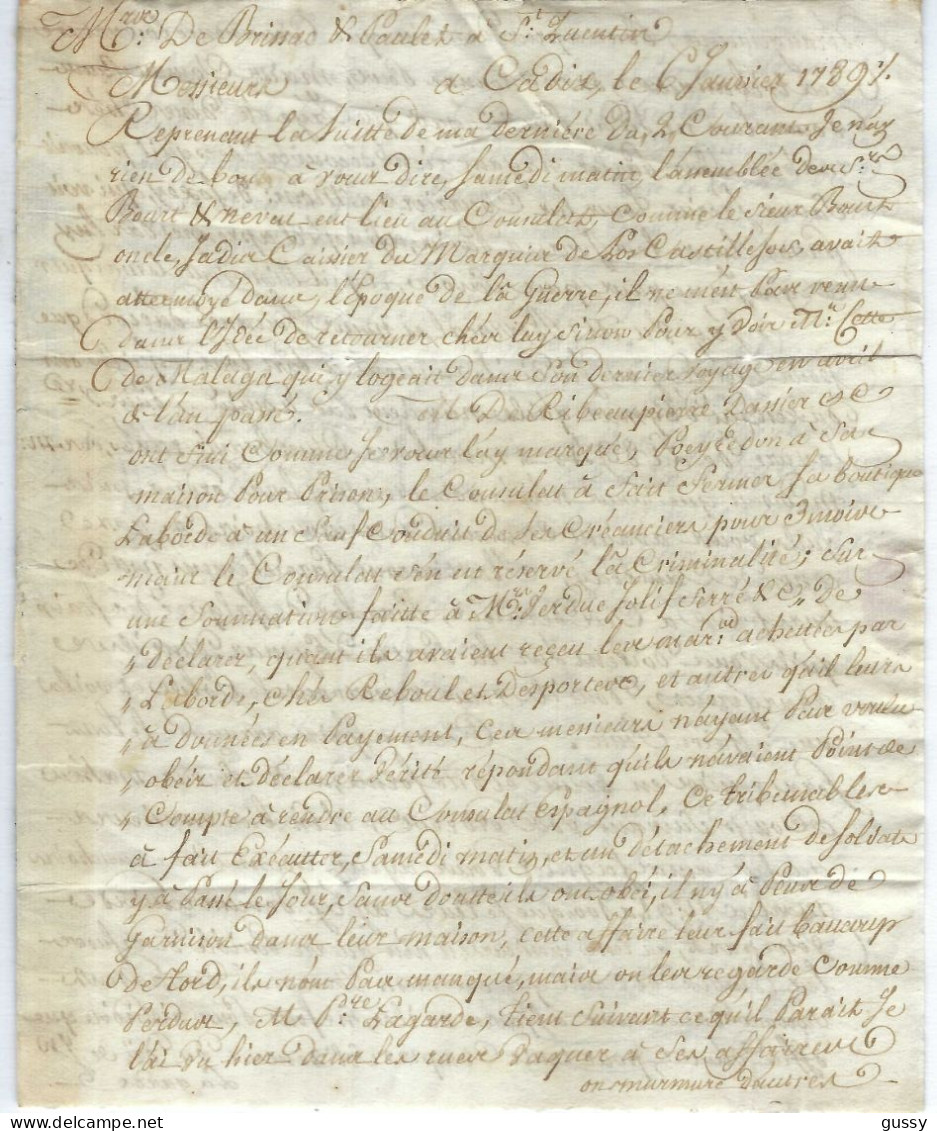 Mrs. De Brissac & Paulet a St. Quentin
Messieurs a Cadix, le 6 Janvier 1789 %
Reprenant la Suitte de ma derniére du, 2, Courant Je n'ay
rien de bon, a vous dire, Samedi matin, l'assemblée des Srs.
Bourt & neveu eut lieu au Consulat, comme le sieur Bourt
oncle, Jadis Caissier du Marquis de Los Castillejos, avait
attermoyé dans, l'Époque de la Guerre, il ne m'est Pas venu
dans l'Idée de retourner chés luy sinon Pour y voir Mr. Cette
de Malaga qui y logeait dans Son dernier voyage en avril
de l'an passé. Mrs De Ribeaupierre, Danier & C
ont failli Comme Je vous l'ay marqué, Peyredon à Sa
maison Pour Prison, le Consulat à fait Fermer Sa boutique
Laborde à un Sauf Conduit de Ses Créanciers pour 3 mois
mais le Consulat s'en est réservé la Criminalité; Sur
une Sommation faitte à Mrs. Verduc Jolif Serré & C,, De
,, Déclarer, quant ils avaient reçeu les mar:ds achettées par
,, Laborde, chés Reboul et Desportes, et autres qu'il leurs
,, à données en Payement, Ces messieurs n'ayant Pas voulu
obéir et Déclarer Vérité répondant qu'ils n'avaient Point de
,, Compte à rendre au Consulat Espagnol, Ce tribunal les
à fait Exécutter, Samedi matin, et un détachement de Soldats
y à Passé le Jour, Sans doutte ils ont obéi, il n'y à Plus de
Garnison dans leur maison, cette affaire leur fait beaucoup
De tord, ils n'ont Pas manqué, mais on les regarde Comme
Perdus, M P.re Lagarde, tient Suivant ce qu'il Parait Je
l'ai vu hier dans les rues Vaquer à Ses affaires
on murmure d'autres